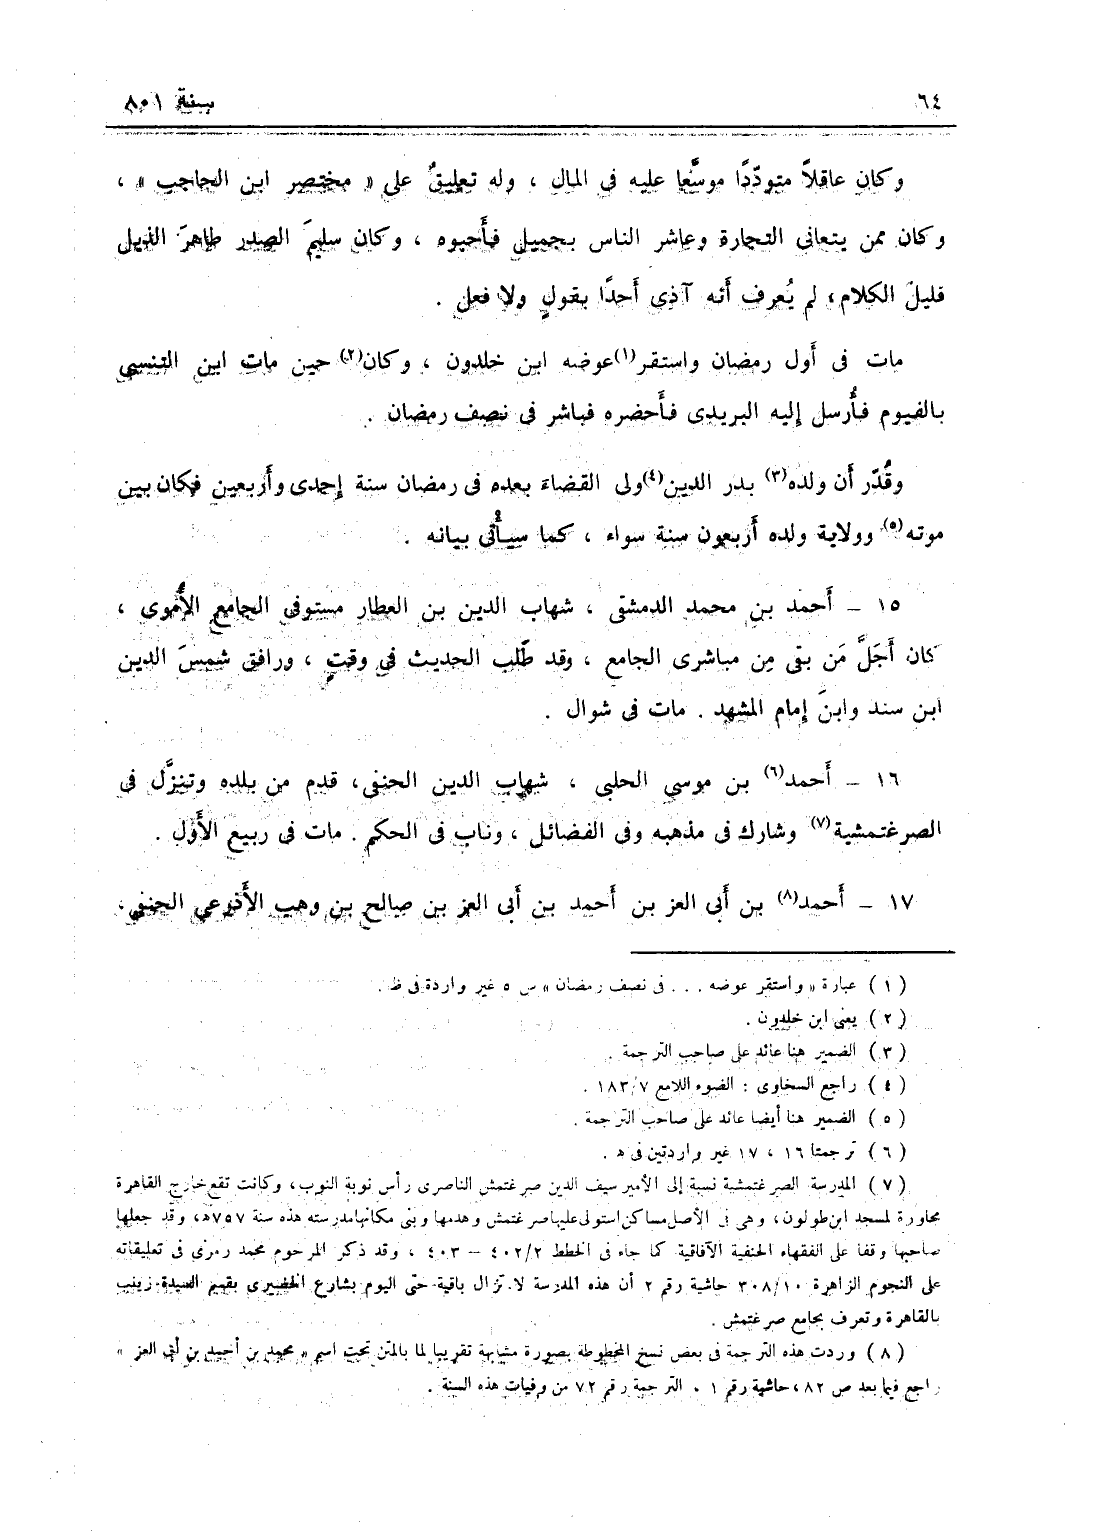 ٦٤
سنة ٨٠١
وكان عاقلاً متودّدًا موسَّعا عليه فى المال ، وله تعليقٌ على « مختصر ابن الحاجب » ،
وكان ممن يتعانى التجارة وعاشر الناس بجميلٍ فأَحبوه ، وكان سليمَ الصدر طاهرَ الذيل
قليلَ الكلام، لم يُعرف أَنه آذى أَحدًا بقولٍ ولا فعل .
مات فى أَول رمضان واستقر(١) عوضه ابن خلدون ، وكان(٢) حين مات ابن التنسى
بالفيوم فأُرسل إليه البريدى فأَحضره فباشر فى نصف رمضان .
وقُدّر أَن ولده(٣) بدر الدين(٤) ولى القضاءَ بعده فى رمضان سنة إحدى وأَربعين فكان بين
موته(٥) وولاية ولده أَربعون سنة سواء ، كما سيأْتى بيانه .
١٥ – أَحمد بن محمد الدمشقى ، شهاب الدين بن العطار مستوفى الجامع الأُموى ،
كان أَجَلَّ مَن بقى مِن مباشرى الجامع ، وقد طَلب الحديث فى وقتٍ ، ورافق شمسَ الدين
ابن سند وابنَ إمام المشهد . مات فى شوال .
١٦ – أَحمد(٦) بن موسى الحلبى ، شهاب الدين الحنفى، قدم من بلده وتنزَّل فى
الصرغتمشية(٧) وشارك فى مذهبه وفى الفضائل ، وناب فى الحكم . مات فى ربيع الأَوّل .
١٧ – أَحمد(٨) بن أَبى العز بن أَحمد بن أَبى العز بن صالح بن وهب الأَذرعى الحنفى،
( ١ ) عبارة « واستقر عوضه . . . فى نصف رمضان » س ٥ غير واردة فى ظ .
( ٢ ) يعنى ابن خلدون .
( ٣ ) الضمير هنا عائد على صاحب الترجمة .
( ٤ ) راجع السخاوى : الضوء اللامع ١٨٣/٧ .
( ٥ ) الضمير هنا أيضا عائد على صاحب الترجمة .
( ٦ ) ترجمتا ١٦ ، ١٧ غير واردتين فى ه .
( ٧ ) المدرسة الصرغتمشية نسبة إلى الأمير سيف الدين صرغتمش الناصرى رأس نوبة النوب، وكانت تقع خارج القاهرة
مجاورة لمسجد ابن طولون، وهى فى الأصل مساكن استولى عليها صرغتمش وهدمها وبنى مكانها مدرسته هذه سنة ٧٥٧ه، وقد جعلها
صاحبها وقفا على الفقهاء الحنفية الآفاقية كما جاء فى الخطط ٤٠٢/٢ – ٤٠٣ ، وقد ذكر المرحوم محمد رمزى فى تعليقاته
على النجوم الزاهرة ٣٠٨/١٠ حاشية رقم ٢ أن هذه المدرسة لا تزال باقية حتى اليوم بشارع الخضيرى بقسم السيدة زينب
بالقاهرة وتعرف بجامع صرغتمش .
( ٨ ) وردت هذه الترجمة فى بعض نسخ المخطوطة بصورة مشابهة تقريبا لما بالمتن تحت اسم « محمد بن أحمد بن أبى العز »
راجع فيما بعد ص ٨٢ ، حاشية رقم ١ ، الترجمة رقم ٧٢ من وفيات هذه السنة .